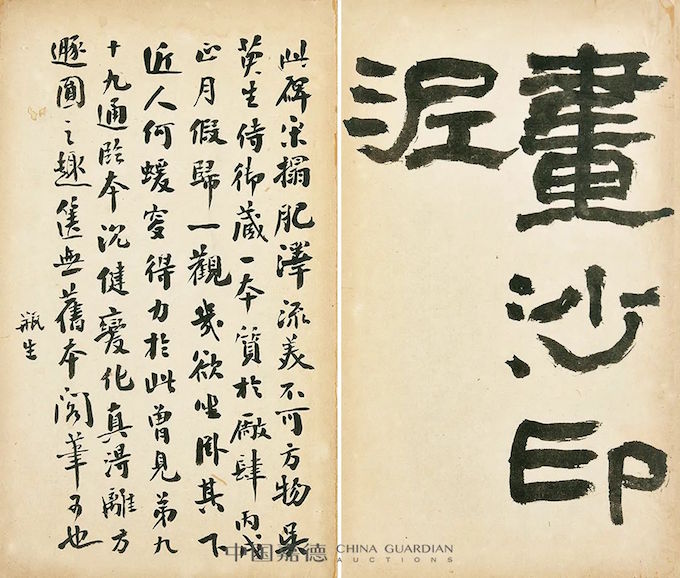 畫沙印
泥
此碑宋搨肥澤流美不可方物吳
生侍御藏一本質於廠肆丙戌
正月假歸一觀幾欲坐臥其下
近人何蝯叟得力於此曾見第九
十九通臨本沉健變化真得離方
遯圓之趣無舊本閣筆可也
瓶生
中国嘉德 CHINA GUARDIAN
AUCTIONS